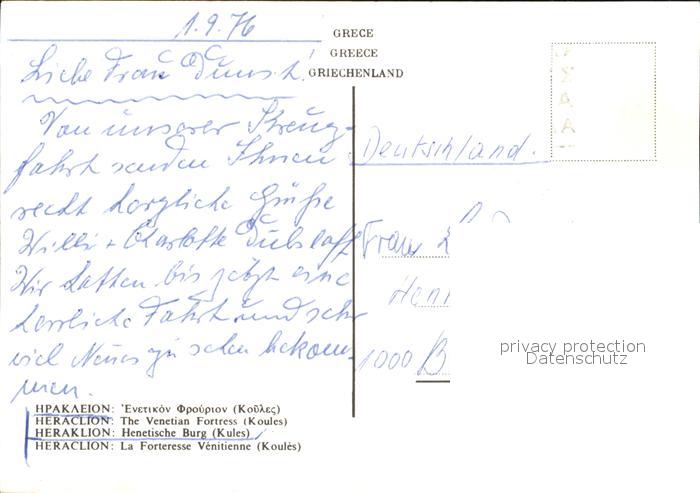 1.9.76
GRECE
GREECE
GRIECHENLAND
Liebe Frau
Von unserer Kreuz-
fahrt senden Ihnen
recht herzliche Grüße
Willi + Charlotte
Wir hatten bis jetzt eine
herrliche Fahrt und sehr
viel Neues zu sehen bekom-
men.
Deutschland.
Frau
1000 B
privacy protection
Datenschutz
ΗΡΑΚΛΕΙΟΝ: Ἐνετικόν Φρούριον (Κοῦλες)
HERACLION: The Venetian Fortress (Koules)
HERAKLION: Henetische Burg (Kules)
HERACLION: La Forteresse Vénitienne (Koulès)